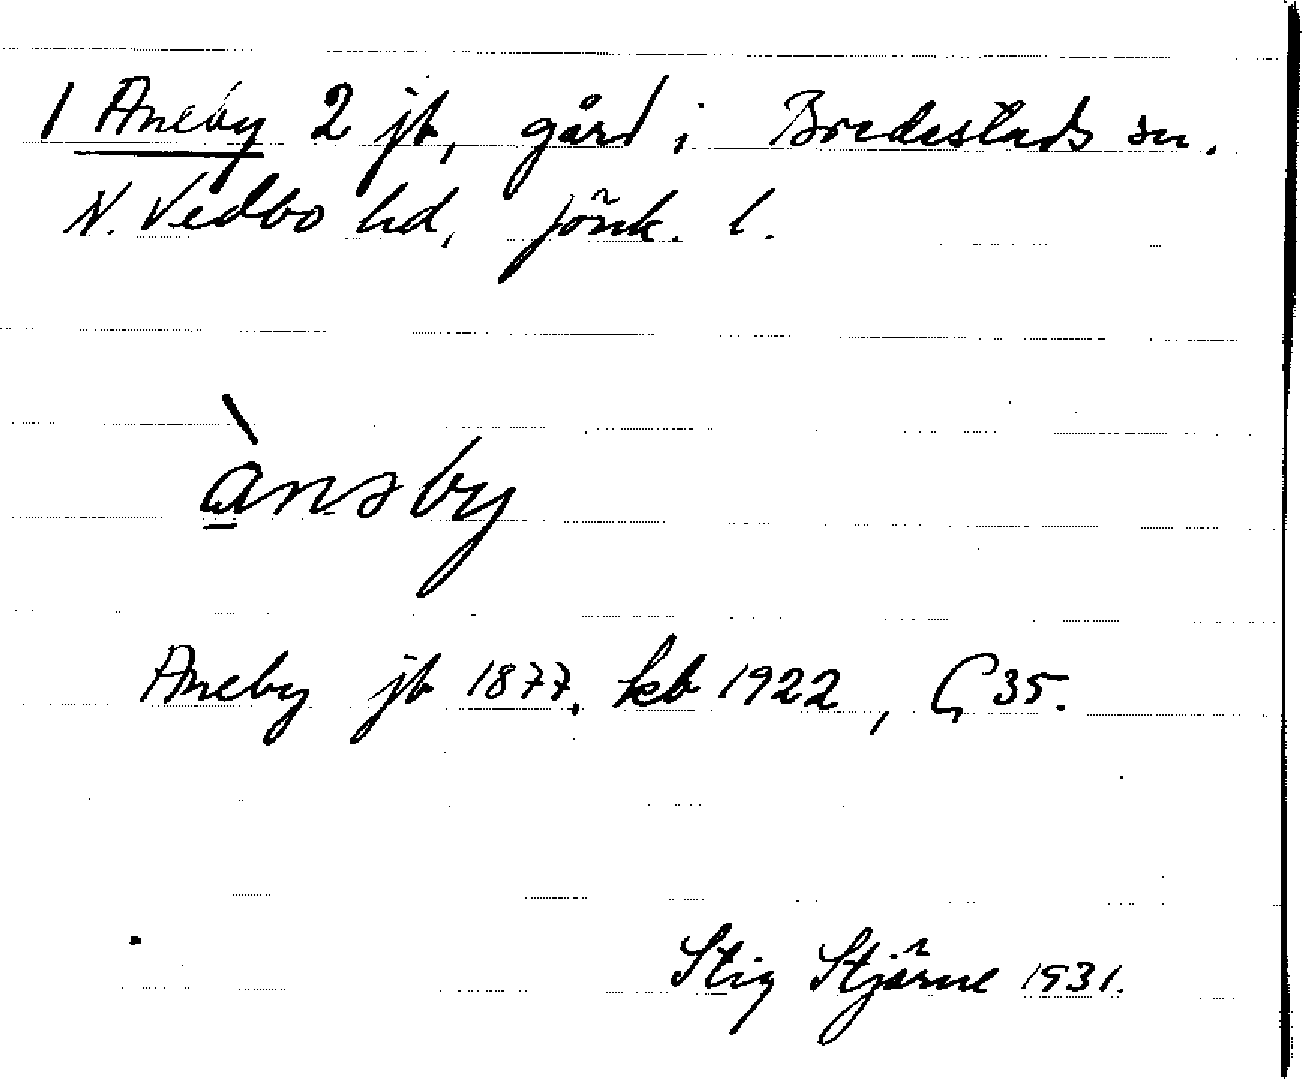 1 Aneby 2 jb, gård i Bredestads sn.
N. Vedbo hd, Jönk. l.
ànəby
Aneby jb 1877. kb 1922, G 35.
Stig Stjärne 1931.